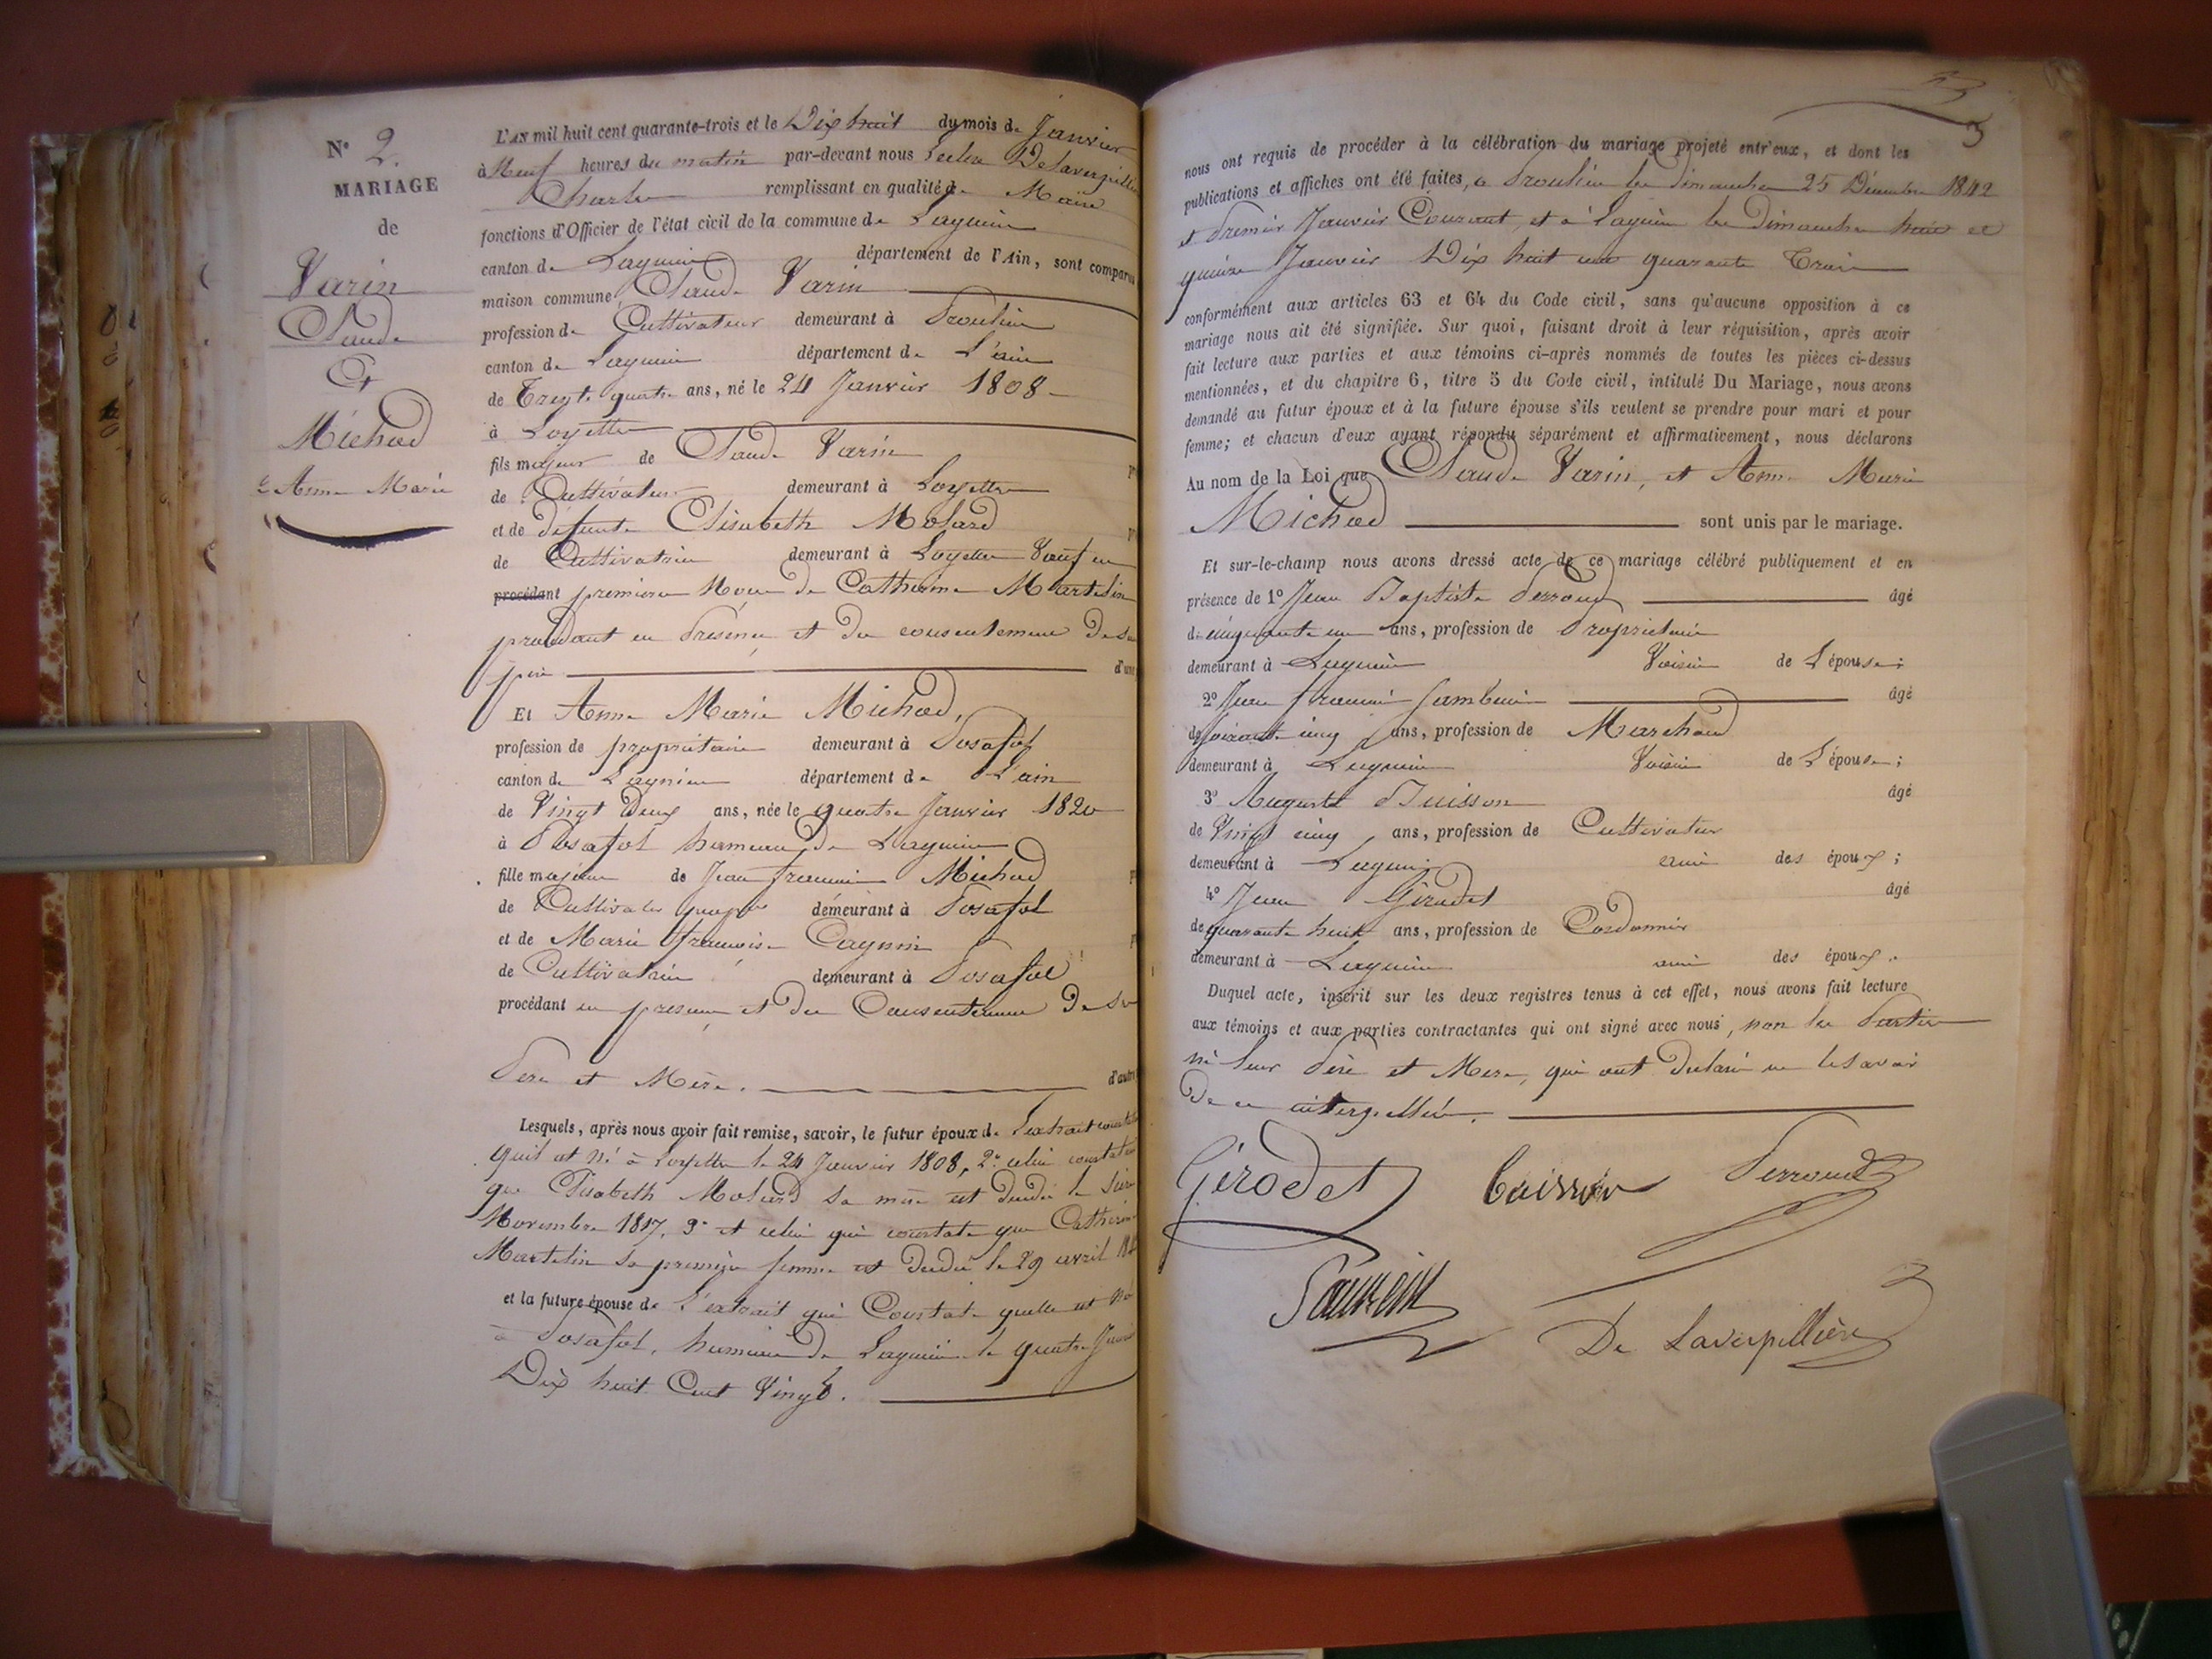 N° 2.
MARIAGE
de
Varin
Claude
Et
Michod
Anne Marie
L'AN mil huit cent quarante-trois et le Dix huit du mois de Janvier
à Neuf heures du matin par-devant nous Delaverpillière
Charles remplissant en qualité de Maire
fonctions d'Officier de l'état civil de la commune de Lagnieu
canton de Lagnieu département de l'Ain, sont comparus
maison commune Claude Varin
profession de Cultivateur demeurant à Proulieu
canton de Lagnieu département de L'ain
de Trente quatre ans, né le 24 Janvier 1808
à Loyettes
fils majeur de Claude Varin
de Cultivateur demeurant à Loyettes
et de défunte Elisabeth Molard
de Cultivatrice demeurant à Loyettes Veuf en
procédant première Noce de Catherine Martelin
procédant en Présence et du consentement de son
père d'une
Et Anne Marie Michod,
profession de propriétaire demeurant à Posafol
canton de Lagnieu département de L'ain
de Vingt Deux ans, née le quatre Janvier 1820
à Posafol hameau de Lagnieu
fille majeure de Jean françois Michod
de Cultivateur demeurant à Posafol
et de Marie françoise Cagnin
de Cultivatrice demeurant à Posafol
procédant en présence et du Consentement de ses
Père et Mère. d'autre
Lesquels, après nous avoir fait remise, savoir, le futur époux de l'extrait
quil est né à Loyettes le 24 Janvier 1808, 2° celui constatant
que Elisabeth Molard sa mère est décédée le
Novembre 1817, 3° et celui qui constate que Catherine
Martelin sa première femme est décédée le 29 avril
et la future épouse de l'extrait qui Constate quelle est née
à Posafol, hameau de Lagnieu le quatre Janvier
Dix huit Cent Vingt.
nous ont requis de procéder à la célébration du mariage projeté entr'eux, et dont les
publications et affiches ont été faites, a Proulieu les Dimanches 25 Décembre 1842
et Premier Janvier Courant, et à Lagnieu les Dimanches huit et
quinze Janvier Dix huit cent quarante Trois
conformément aux articles 63 et 64 du Code civil, sans qu'aucune opposition à ce
mariage nous ait été signifiée. Sur quoi, faisant droit à leur réquisition, après avoir
fait lecture aux parties et aux témoins ci-après nommés de toutes les pièces ci-dessus
mentionnées, et du chapitre 6, titre 5 du Code civil, intitulé Du Mariage, nous avons
demandé au futur époux et à la future épouse s'ils veulent se prendre pour mari et pour
femme; et chacun d'eux ayant répondu séparément et affirmativement, nous déclarons
Au nom de la Loi que Claude Varin, et Anne Marie
Michod sont unis par le mariage.
Et sur-le-champ nous avons dressé acte de ce mariage célébré publiquement et en
présence de 1° Jean Baptiste Perroud âgé
de cinquante un ans, profession de Propriétaire
demeurant à Lagnieu Voisin de L'épouse;
2° Jean françois âgé
de soixante cinq ans, profession de Marchand
demeurant à Lagnieu Voisin de L'épouse;
3° Auguste Buisson âgé
de Vingt cinq ans, profession de Cultivateur
demeurant à Lagnieu ami des époux;
4° Jean Girodet âgé
de quarante huit ans, profession de Cordonnier
demeurant à Lagnieu ami des époux.
Duquel acte, inscrit sur les deux registres tenus à cet effet, nous avons fait lecture
aux témoins et aux parties contractantes qui ont signé avec nous, non les Parties
ni leur Père et Mère, qui ont Déclaré ne le savoir
De ce interpellés.
Girodet Buisson Perroud
De Laverpillière